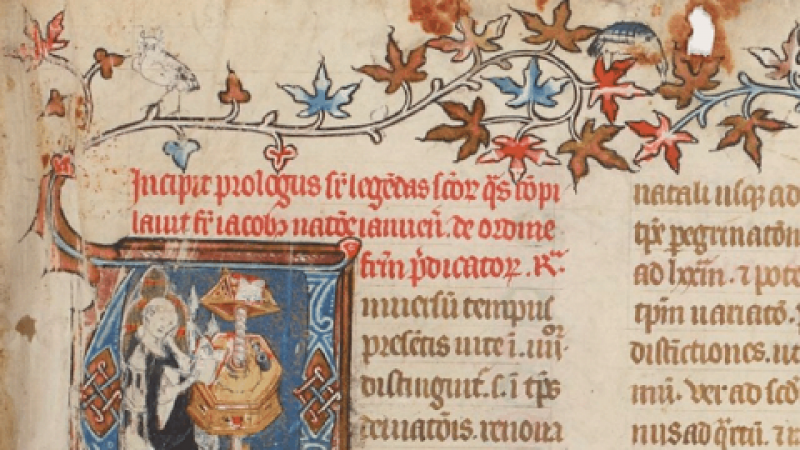 Incipit prologus sr̄ legēdas sc̄oꝝ q̄s cōpi
lauit fr̄ iacobꝰ natōe ianueñ. de ordine
fr̄m p̄dicatoꝝ. Rᵃ.
niuersū tempus
presētis uite ī. iiiiᵒʳ
distinguit̄. s. ī tp̄s
deuiatōis. renoua
natali usqꝫ ad
tp̄e peꝑegrinatōn
ad lxxm̄. ⁊ pote
tp̄m uariatō.
distīctiones. ut
mū. ver ad sc̄d